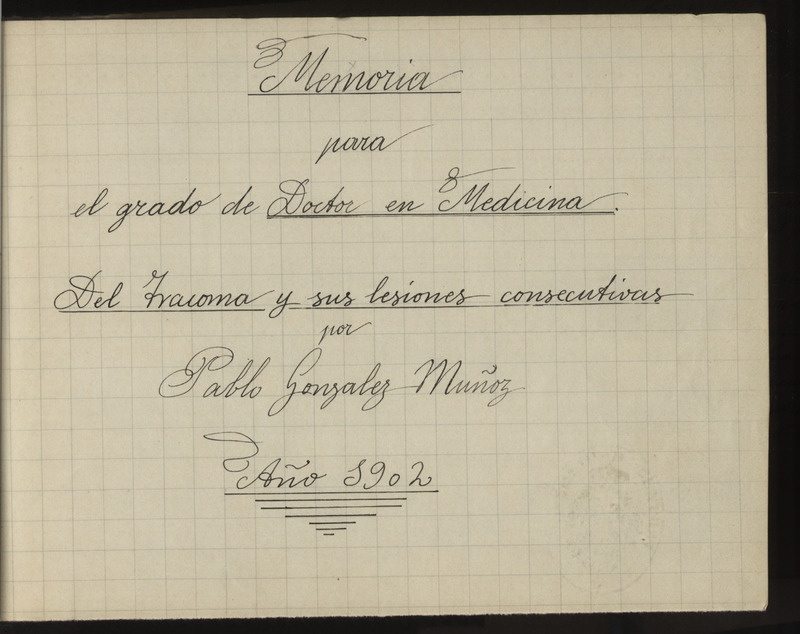 Memoria
para
el grado de Doctor en Medicina.
Del Tracoma y sus lesiones consecutivas
por
Pablo Gonzalez Muñoz
Año 1902